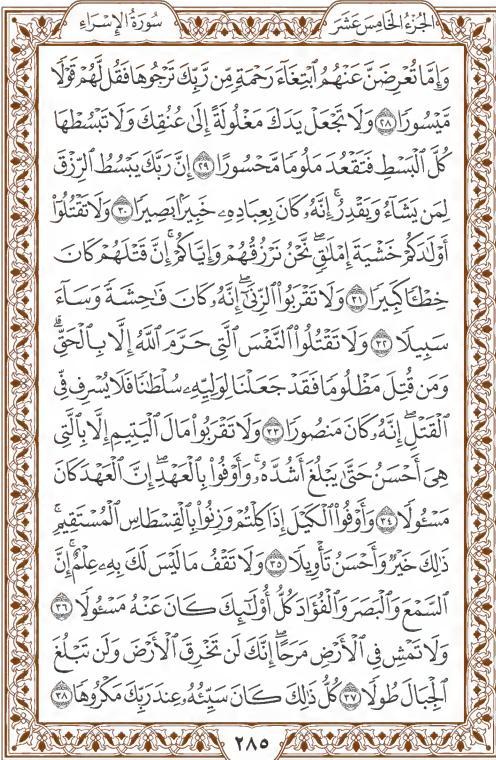 الجُزْءُ الخَامِسَ عَشَرَ
سُورَةُ الإِسْرَاءِ
وَإِمَّا تُعْرِضَنَّ عَنْهُمُ ٱبْتِغَآءَ رَحْمَةٍ مِّن رَّبِّكَ تَرْجُوهَا فَقُل لَّهُمْ قَوْلًا
مَّيْسُورًا ٢٨ وَلَا تَجْعَلْ يَدَكَ مَغْلُولَةً إِلَىٰ عُنُقِكَ وَلَا تَبْسُطْهَا
كُلَّ ٱلْبَسْطِ فَتَقْعُدَ مَلُومًا مَّحْسُورًا ٢٩ إِنَّ رَبَّكَ يَبْسُطُ ٱلرِّزْقَ
لِمَن يَشَآءُ وَيَقْدِرُ ۚ إِنَّهُۥ كَانَ بِعِبَادِهِۦ خَبِيرًۢا بَصِيرًا ٣٠ وَلَا تَقْتُلُوٓا۟
أَوْلَٰدَكُمْ خَشْيَةَ إِمْلَٰقٍ ۖ نَّحْنُ نَرْزُقُهُمْ وَإِيَّاكُمْ ۚ إِنَّ قَتْلَهُمْ كَانَ
خِطْـًٔا كَبِيرًا ٣١ وَلَا تَقْرَبُوا۟ ٱلزِّنَىٰٓ ۖ إِنَّهُۥ كَانَ فَٰحِشَةً وَسَآءَ
سَبِيلًا ٣٢ وَلَا تَقْتُلُوا۟ ٱلنَّفْسَ ٱلَّتِى حَرَّمَ ٱللَّهُ إِلَّا بِٱلْحَقِّ ۗ
وَمَن قُتِلَ مَظْلُومًا فَقَدْ جَعَلْنَا لِوَلِيِّهِۦ سُلْطَٰنًا فَلَا يُسْرِف فِّى
ٱلْقَتْلِ ۖ إِنَّهُۥ كَانَ مَنصُورًا ٣٣ وَلَا تَقْرَبُوا۟ مَالَ ٱلْيَتِيمِ إِلَّا بِٱلَّتِى
هِىَ أَحْسَنُ حَتَّىٰ يَبْلُغَ أَشُدَّهُۥ ۚ وَأَوْفُوا۟ بِٱلْعَهْدِ ۖ إِنَّ ٱلْعَهْدَ كَانَ
مَسْـُٔولًا ٣٤ وَأَوْفُوا۟ ٱلْكَيْلَ إِذَا كِلْتُمْ وَزِنُوا۟ بِٱلْقِسْطَاسِ ٱلْمُسْتَقِيمِ ۚ
ذَٰلِكَ خَيْرٌ وَأَحْسَنُ تَأْوِيلًا ٣٥ وَلَا تَقْفُ مَا لَيْسَ لَكَ بِهِۦ عِلْمٌ ۚ إِنَّ
ٱلسَّمْعَ وَٱلْبَصَرَ وَٱلْفُؤَادَ كُلُّ أُو۟لَٰٓئِكَ كَانَ عَنْهُ مَسْـُٔولًا ٣٦
وَلَا تَمْشِ فِى ٱلْأَرْضِ مَرَحًا ۖ إِنَّكَ لَن تَخْرِقَ ٱلْأَرْضَ وَلَن تَبْلُغَ
ٱلْجِبَالَ طُولًا ٣٧ كُلُّ ذَٰلِكَ كَانَ سَيِّئُهُۥ عِندَ رَبِّكَ مَكْرُوهًا ٣٨
٢٨٥